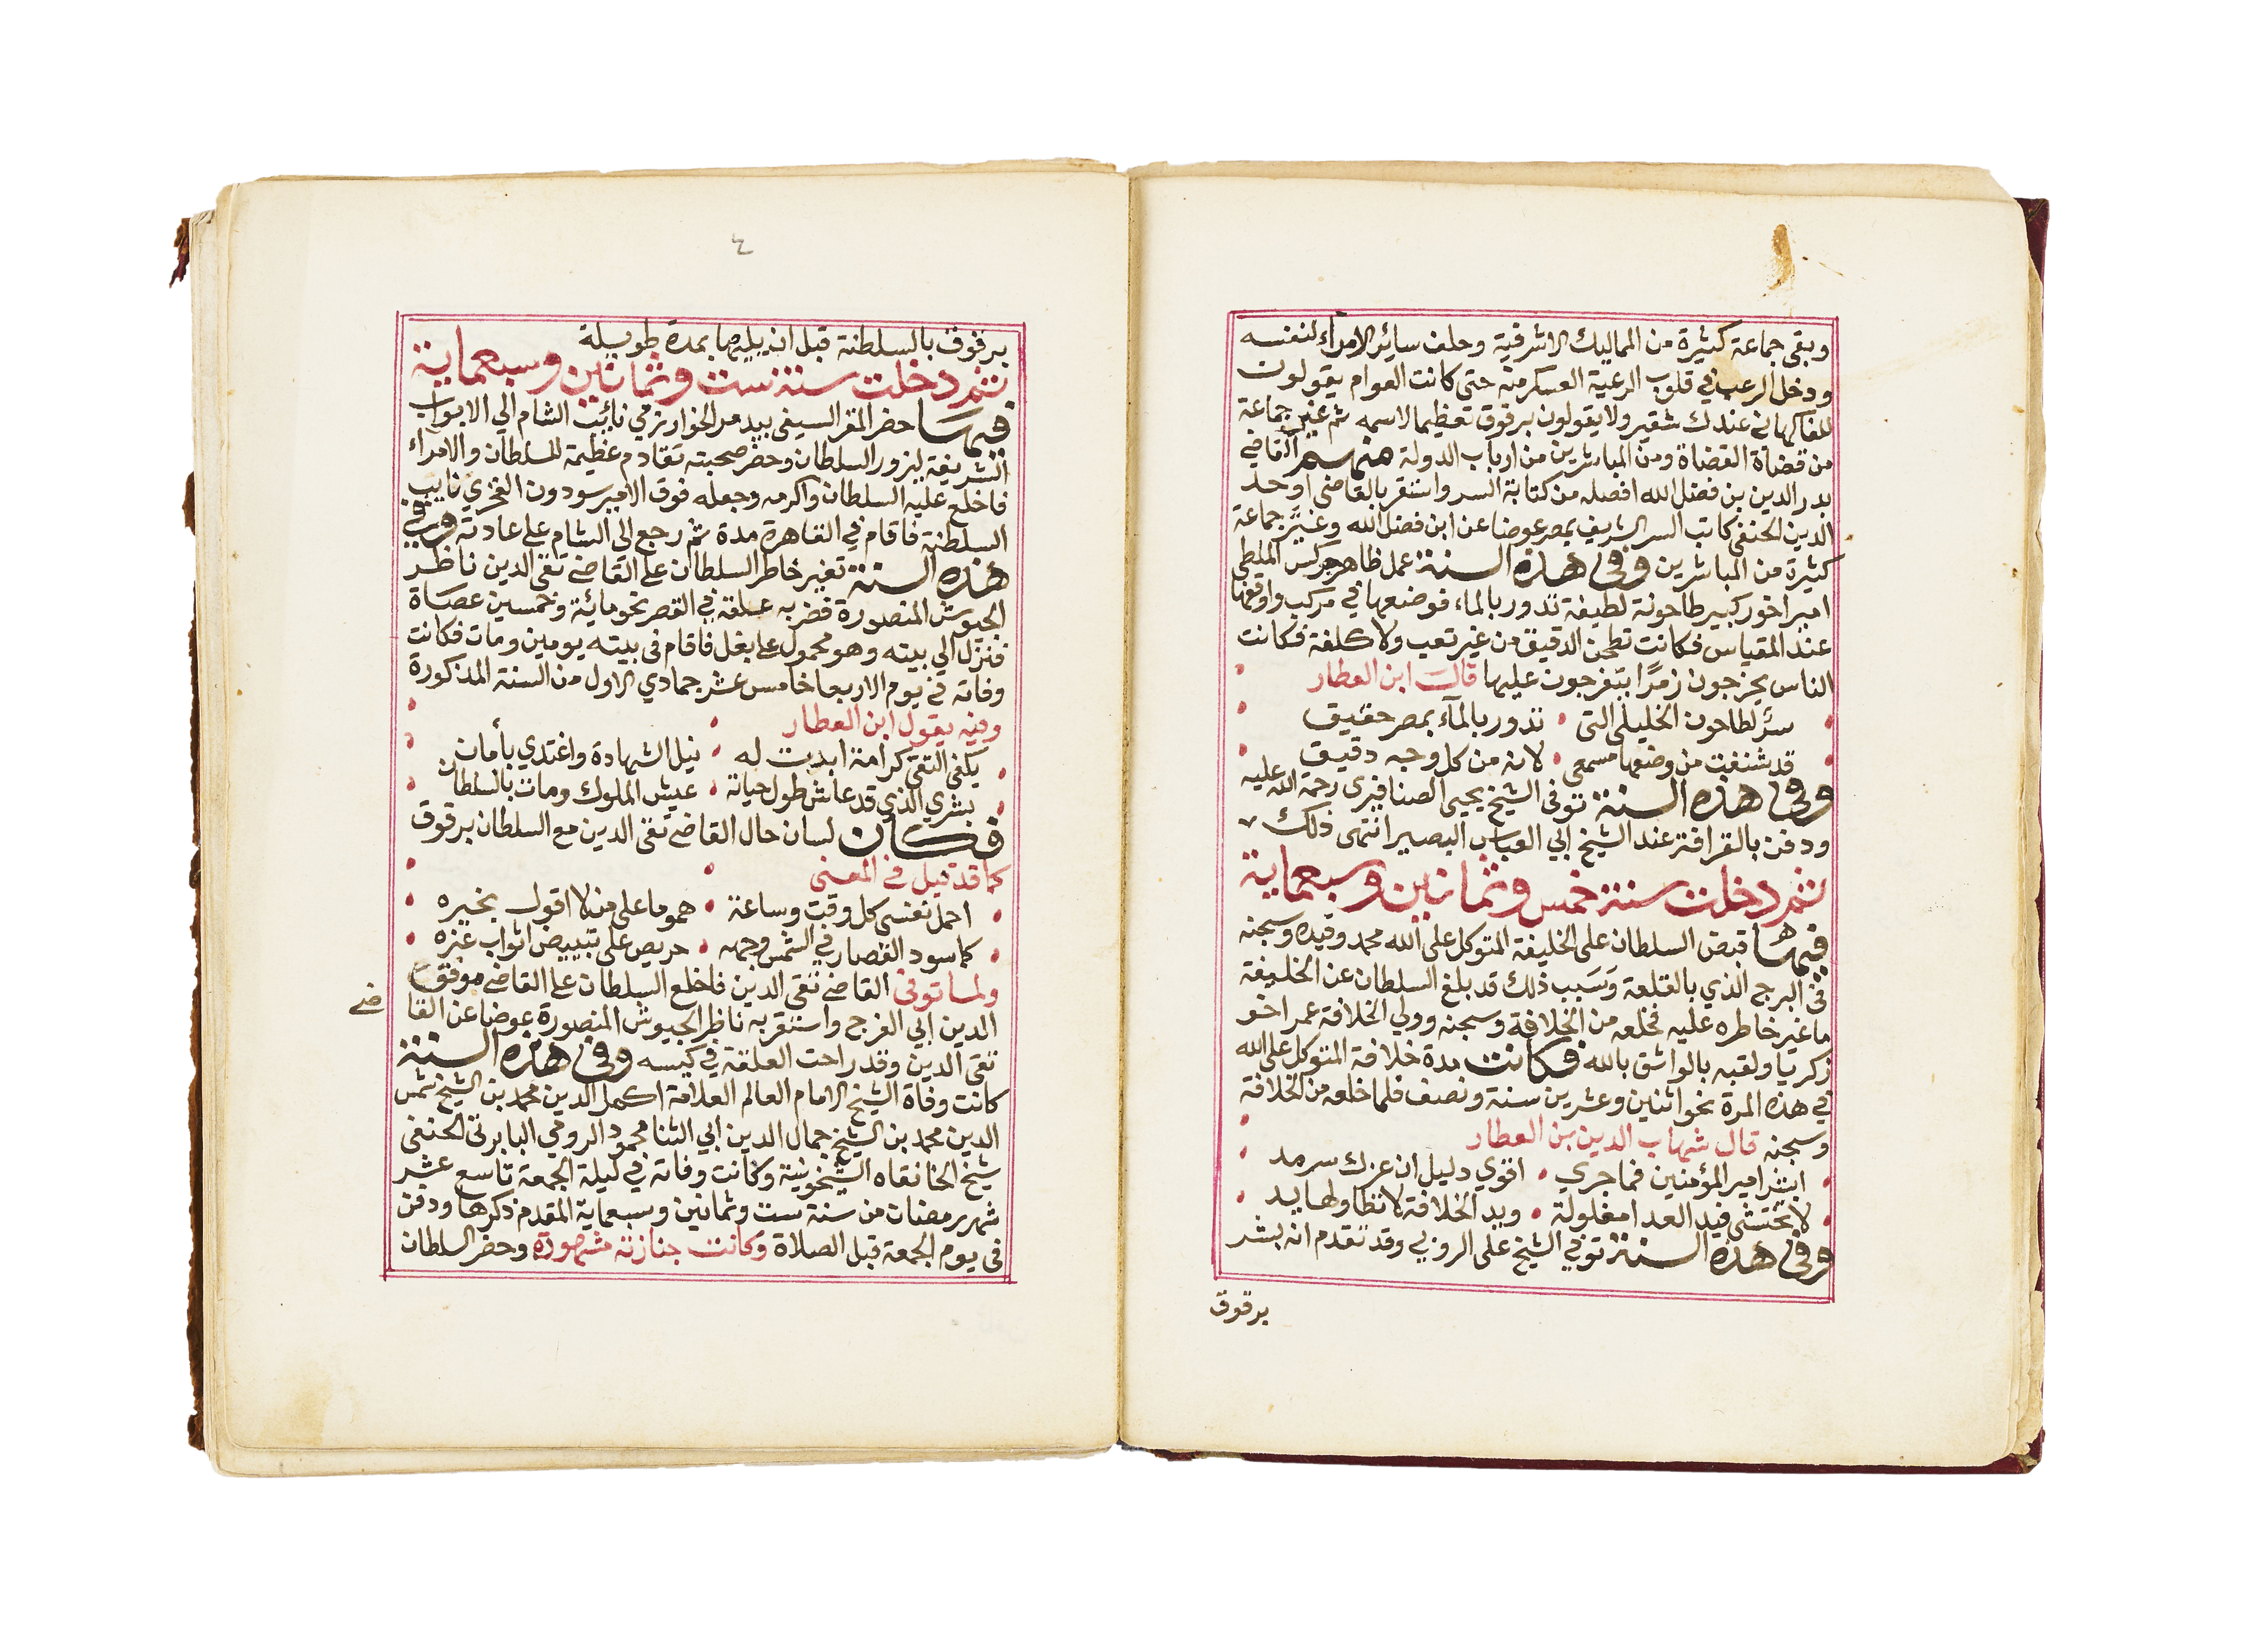 وبقي جماعة كثيرة من المماليك الاشرفية وحلف ساير الامرآء لنفسه
ودخل الرعب في قلوب الرعية العسكر منه حتى كانت العوام يقولون
للفاكهاني عندك شقير ولا يقولون برقوق تعظيما لاسمه ثم غير جماعة
من قضاة القضاة ومن المباشرين من ارباب الدولة منهم القاضي
بدر الدين بن فضل الله افصله من كتابة السر واستقر بالقاضي اوحد
الدين الحنفي كاتب السر الشريف بمصر عوضا عن ابن فضل الله وغير جماعة
كثيرة من المباشرين وفي هذه السنة عمل ظاهر جركس الملطي
امير اخور كبير طاحونة لطيفة تدور بالماء فوضعها في مركب واوقفها
عند المقياس فكانت تطحن الدقيق من غير تعب ولا كلفة فكانت
الناس يخرجون زمرًا يتفرجون عليها قال ابن العطار
سرُّ لطاحون الخليلي التي تدور بالمآء بمصر حقيق
قد شنفت من وضعها مسمعي لانه من كل وجه دقيق
وفي هذه السنة توفي الشيخ يحيي الصنافيري رحمة الله عليه
ودفن بالقرافة عند الشيخ ابي العباس البصير انتهى ذلك
ثم دخلت سنة خمس وثمانين وسبعماية
فيها قبض السلطان على الخليفة المتوكل على الله محمد وقيده وسجنه
في البرج الذي بالقلعة وسبب ذلك قد بلغ السلطان عن الخليفة
ما غير خاطره عليه فخلعه من الخلافة وسجنه وولي الخلافة عمر اخو
زكريا ولقبه بالواثق بالله فكانت مدة خلافة المتوكل على الله
في هذه المرة نحو اثنين وعشرين سنة ونصف فلما خلعه من الخلافة
وسجنه قال شهاب الدين بن العطار
ابشر امير المؤمنين فما جري اقوي دليل ان عزك سرمد
لا تختشي فيد العدا مغلولة ويد الخلافة لا تطاولها يد
وفي هذه السنة توفي الشيخ على الروبي وقد تقدم انه بشر
برقوق
٤
برقوق بالسلطنة قبل ان يليها بمدة طويلة
ثم دخلت سنة ست وثمانين وسبعماية
فيها حضر المقر السيفي بيدمر الخوارزمي نائب الشام الي الابواب
الشريفة ليزور السلطان وحضر صحبته تقادم عظيمة للسلطان والامرآء
فاخلع عليه السلطان واكرمه وجعله فوق الامير سودون الفخري نايب
السلطنة فاقام في القاهرة مدة ثم رجع الي الشام على عادته وفي
هذه السنة تغير خاطر السلطان على القاضي تقي الدين ناظر
الجيوش المنصورة فضربه علقة في القصر نحو مائة وخمسين عصاة
فنزل الي بيته وهو محمول على بغل فاقام في بيته يومين ومات فكانت
وفاته في يوم الاربعا خامس عشر جمادي الاول من السنة المذكورة
وفيه يقول ابن العطار
يكفي التقي كرامة ابديت له نيل الشهادة واغتدي بأمان
بشري الذي قد عاش طول حياته عيش الملوك ومات بالسلطان
فكان لسان حال القاضي تقي الدين مع السلطان برقوق
كما قد قيل في المعنى
احمل نفسي كل وقت وساعة هموما على من لا اقول بخيره
كما سود القصار في الشمس وجهه حريص على تبييض اثواب غيره
ولما توفي القاضي تقي الدين فاخلع السلطان على القاضي موفق
الدين ابي الفرج واستقر به ناظر الجيوش المنصورة عوضا عن القا
ضي
تقي الدين وقد راحت العلقة في كيسه وفي هذه السنة
كانت وفاة الشيخ الامام العالم العلامة اكمل الدين محمد بن الشيخ شمس
الدين محمد بن الشيخ جمال الدين ابي الثنا محمود الرومي البابرتي الحنفي
شيخ الخانقاه الشيخونية وكانت وفاته في ليلة الجمعة تاسع عشر
شهر رمضان من سنة ست وثمانين وسبعماية المقدم ذكرها ودفن
في يوم الجمعة قبل الصلاة وكانت جنازته مشهورة وحضر السلطان